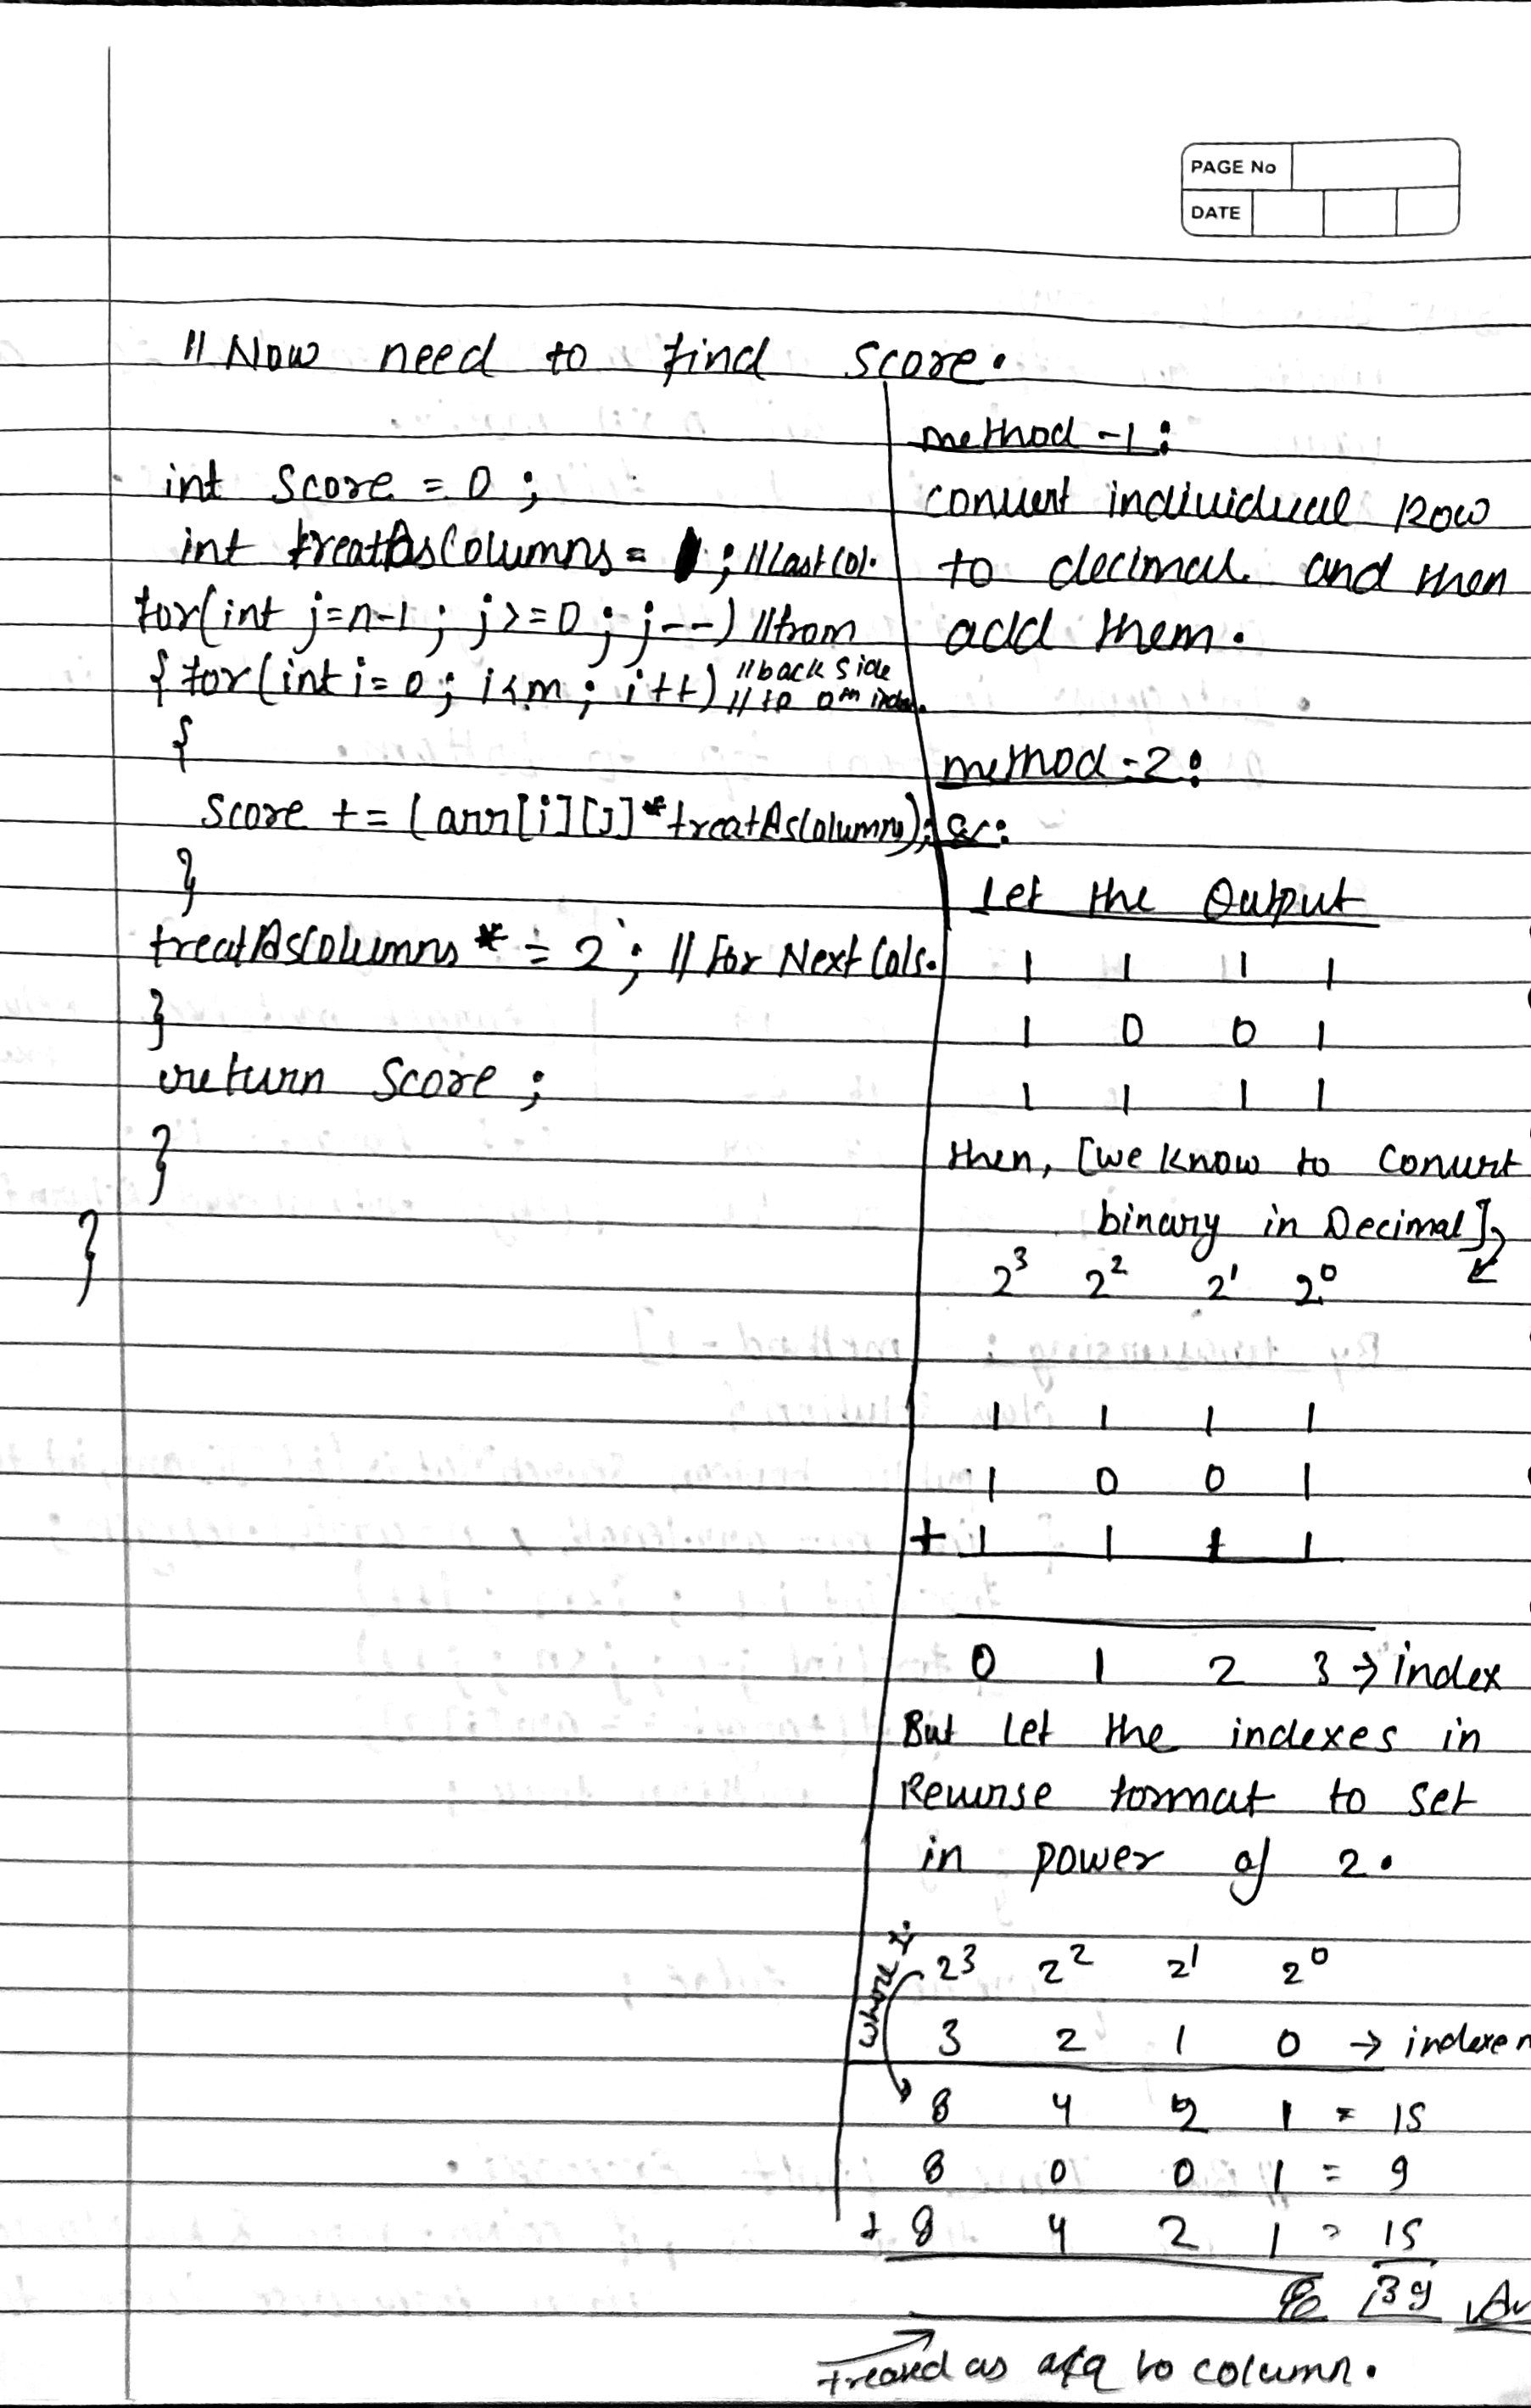 PAGE No
DATE
// Now need to find score.
int score = 0 ;
int treatAsColumns = 1 ; // Last Col.
for(int j=n-1 ; j>=0 ; j--) // from
{ for(int i=0 ; i<m ; i++) // back side
// to 0th index.
{
score += (arr[i][j]*treatAsColumns);
}
treatAsColumns *= 2 ; // For Next Cols.
}
return score ;
}
}
method -1 :
convert individual Row
to decimal and then
add them .
method -2 :
Let the Output
1 1 1 1
1 0 0 1
1 1 1 1
then, [we know to convert
binary in Decimal]
2³ 2² 2¹ 2⁰
1 1 1 1
1 0 0 1
+ 1 1 1 1
0 1 2 3 → index
But let the indexes in
Reverse format to set
in power of 2 .
2³ 2² 2¹ 2⁰
3 2 1 0 →
8 4 2 1 = 15
8 0 0 1 = 9
+ 8 4 2 1 = 15
39
Treated as to column .